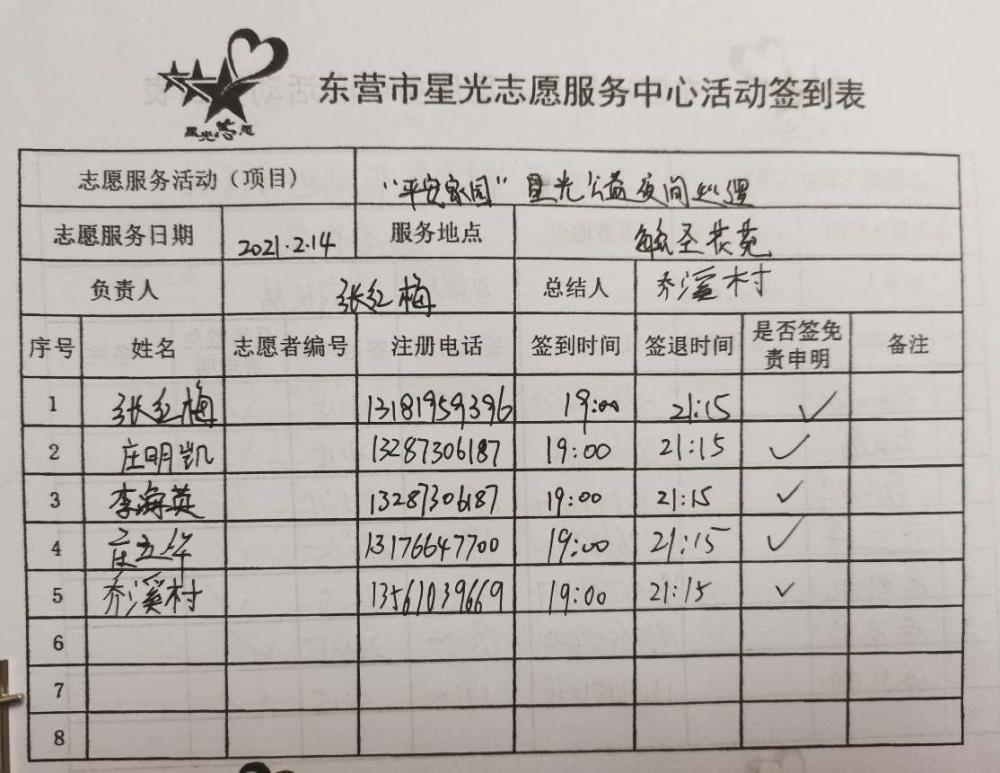 星光志愿
东营市星光志愿服务中心活动签到表
志愿服务活动（项目） "平安家园"星光公益夜间巡逻
志愿服务日期 2021.2.14 服务地点 毓圣花苑
负责人 张红梅 总结人 乔溪村
序号 姓名 志愿者编号 注册电话 签到时间 签退时间 是否签免责申明 备注
1 张红梅 13181959396 19:00 21:15 ✓
2 庄明凯 13287306187 19:00 21:15 ✓
3 李海英 13287306187 19:00 21:15 ✓
4 13176647700 19:00 21:15 ✓
5 乔溪村 13561039669 19:00 21:15 ✓
6
7
8